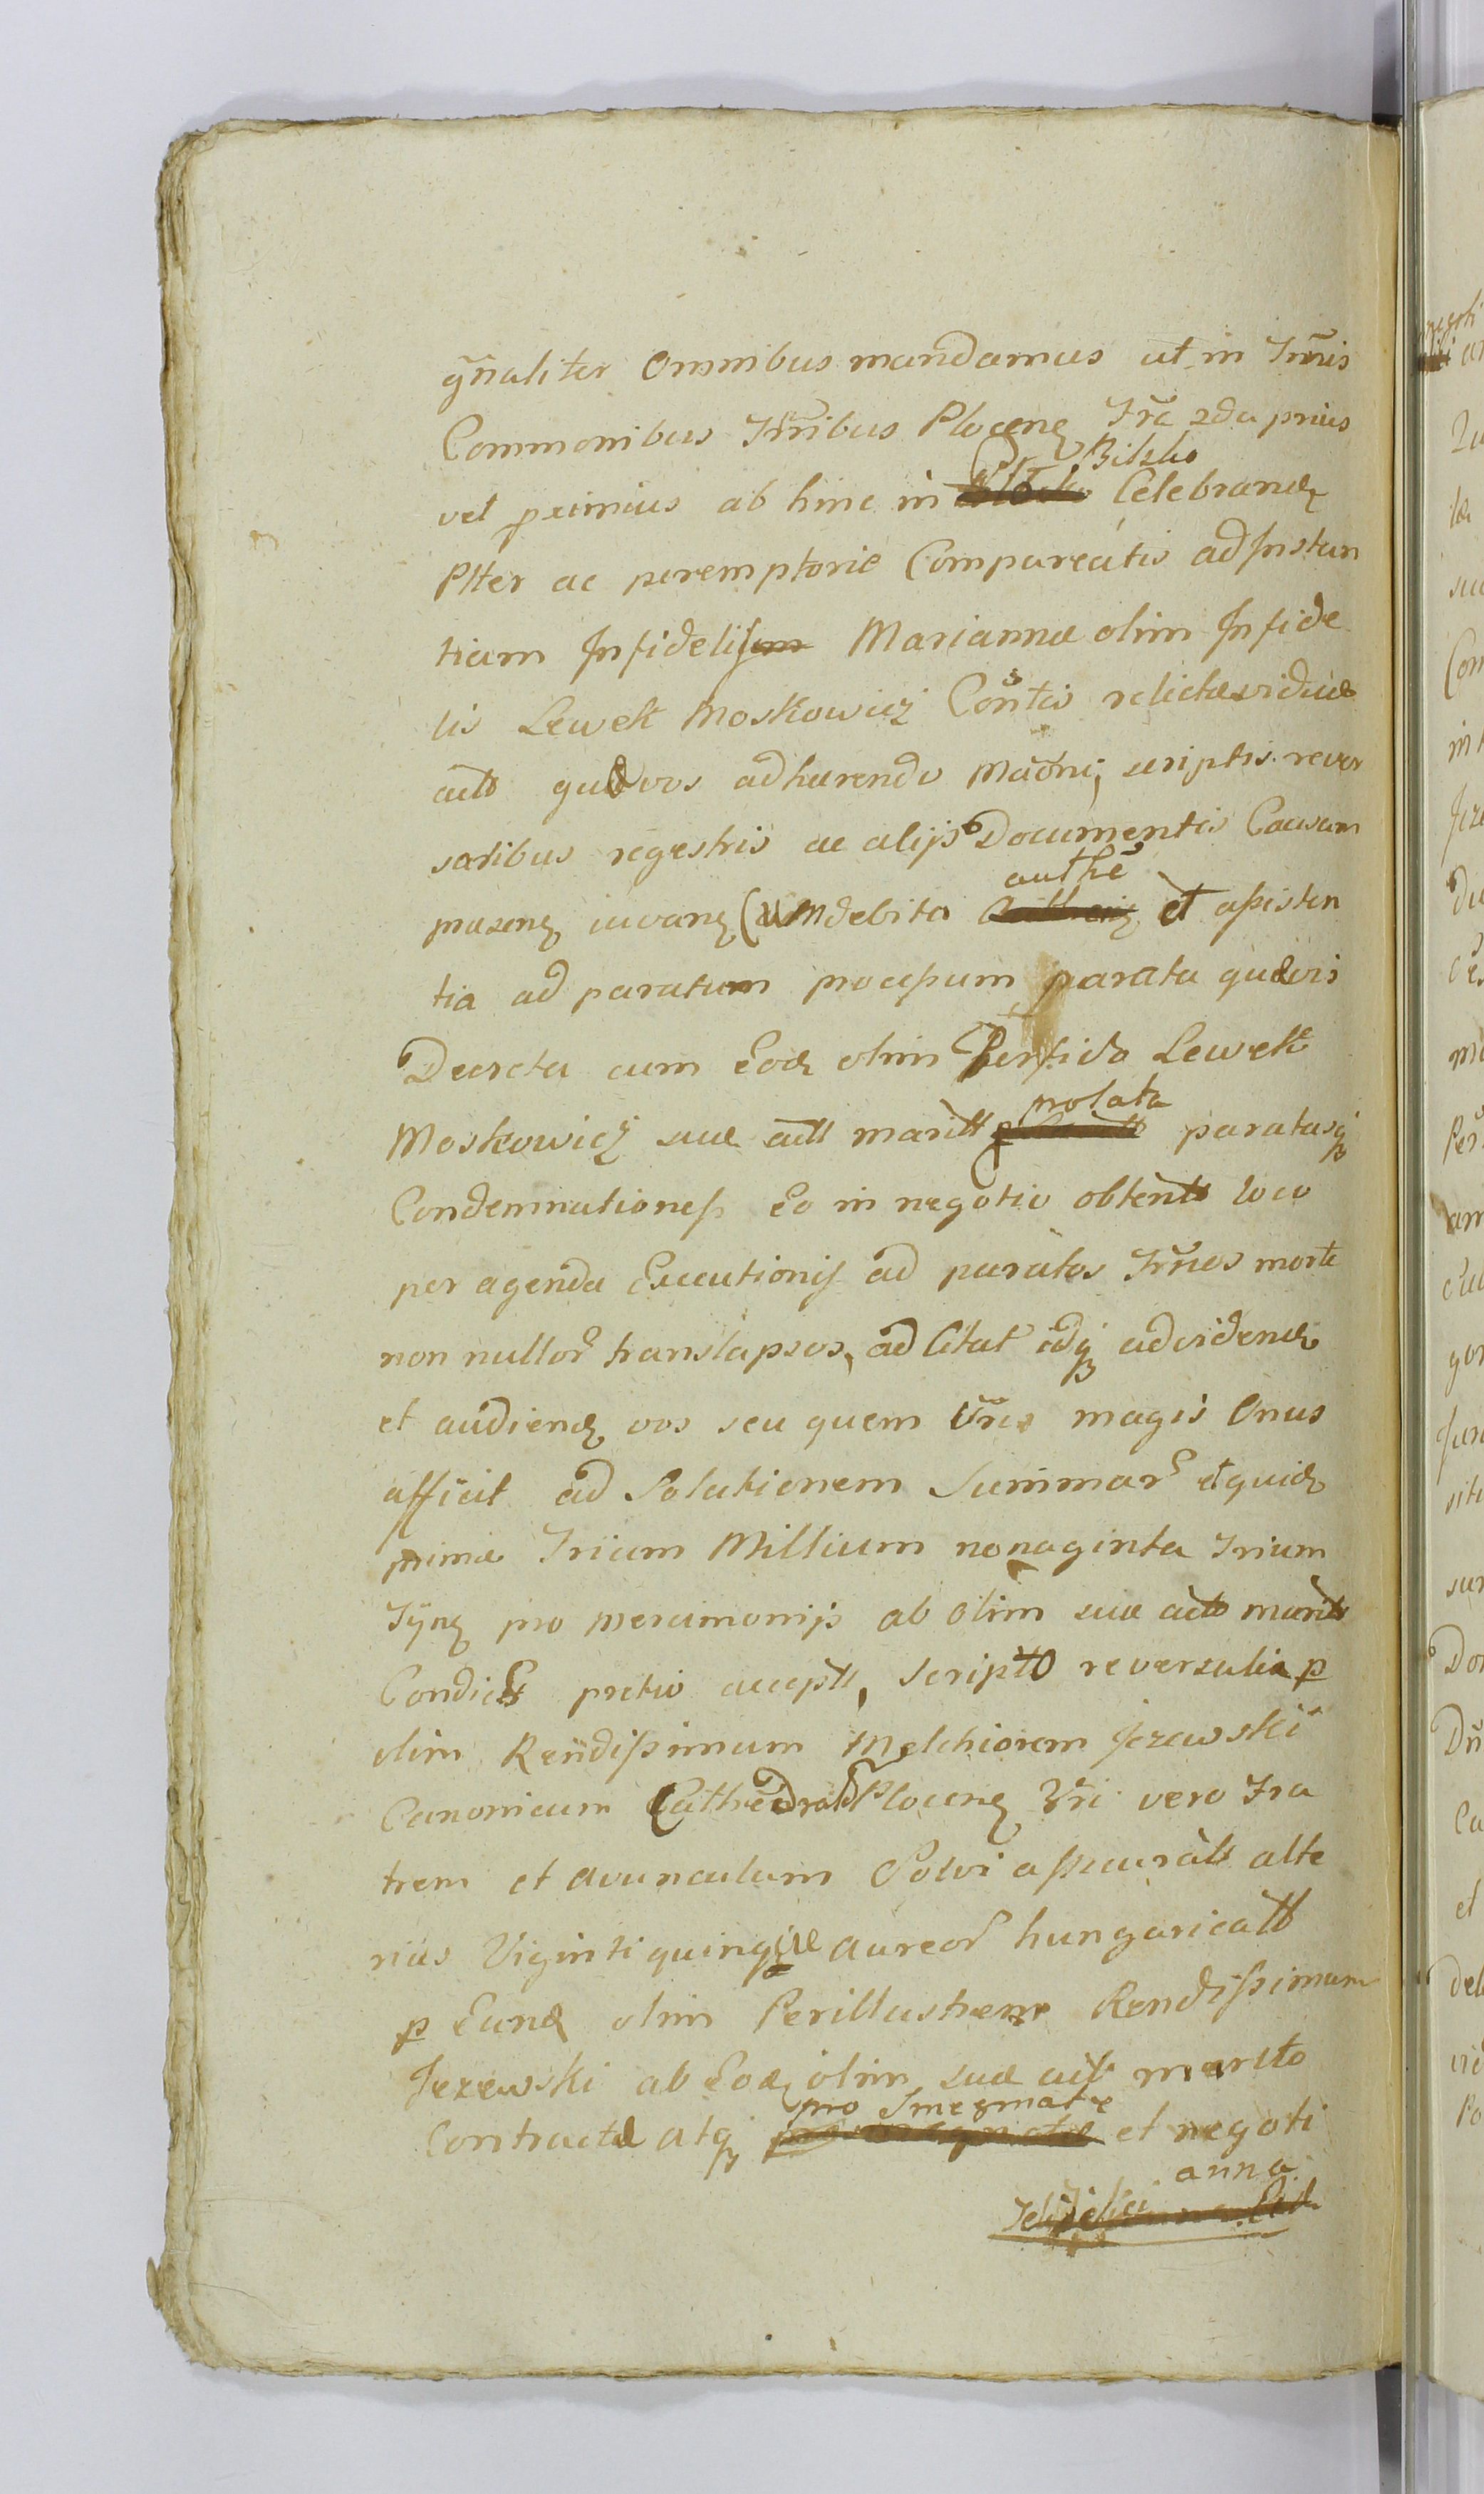 gnãliter Omnibus mandamus ut in Trñis
Commonibus Trñibus Plocenς Fra 2da prius
Bilsko
vel pximius ab hinc in Celebrandς
Plter ac peremptorie Compareatis ad Instan
tiam Infidelis Mariannæ olim Infide
lis Lewek Moskowicz Contis relictæ viduæ
actt quæ vos adhærendo scriptis rever
salibus regestris ac alijs Documentis Causam
authe
præsenς iuvanς Cum debita et assisten
tia ad paratum processum parata quævis
Decreta cum Eodς olim Perfido Lewek
prolata
Moskowicz suæ actt maritt paratasqꝫ
Condemnationes Eo in negotio obtentt loco
per agenda Executionis ad paratos Trños morte
non nullor translapsos, ad Citat adqꝫ ad videndς
et audiendς vos seu quem Vrũ magis Onus
afficit ad Solutionem Summar et quidς
primæ Trium Millium nonaginta Trium
Tÿnς pro mercimonijs ab olim suæ actt maritt
Condictt pretio acceptt, Scripto reversali p
olim Rendissimum Melchiorem Jezewski
Canonicum Cathedral Plocenς Vri vero Fra
trem et avunculum Solvi assecuratt alte
rius Viginti quinque aureor hungaricatt
p Eundς olim Perillustrem Rendissimum
Jezewski ab Eodς olim suæ actt marito
pro Smegmate
Contractæ atqꝫ et negoti
anna